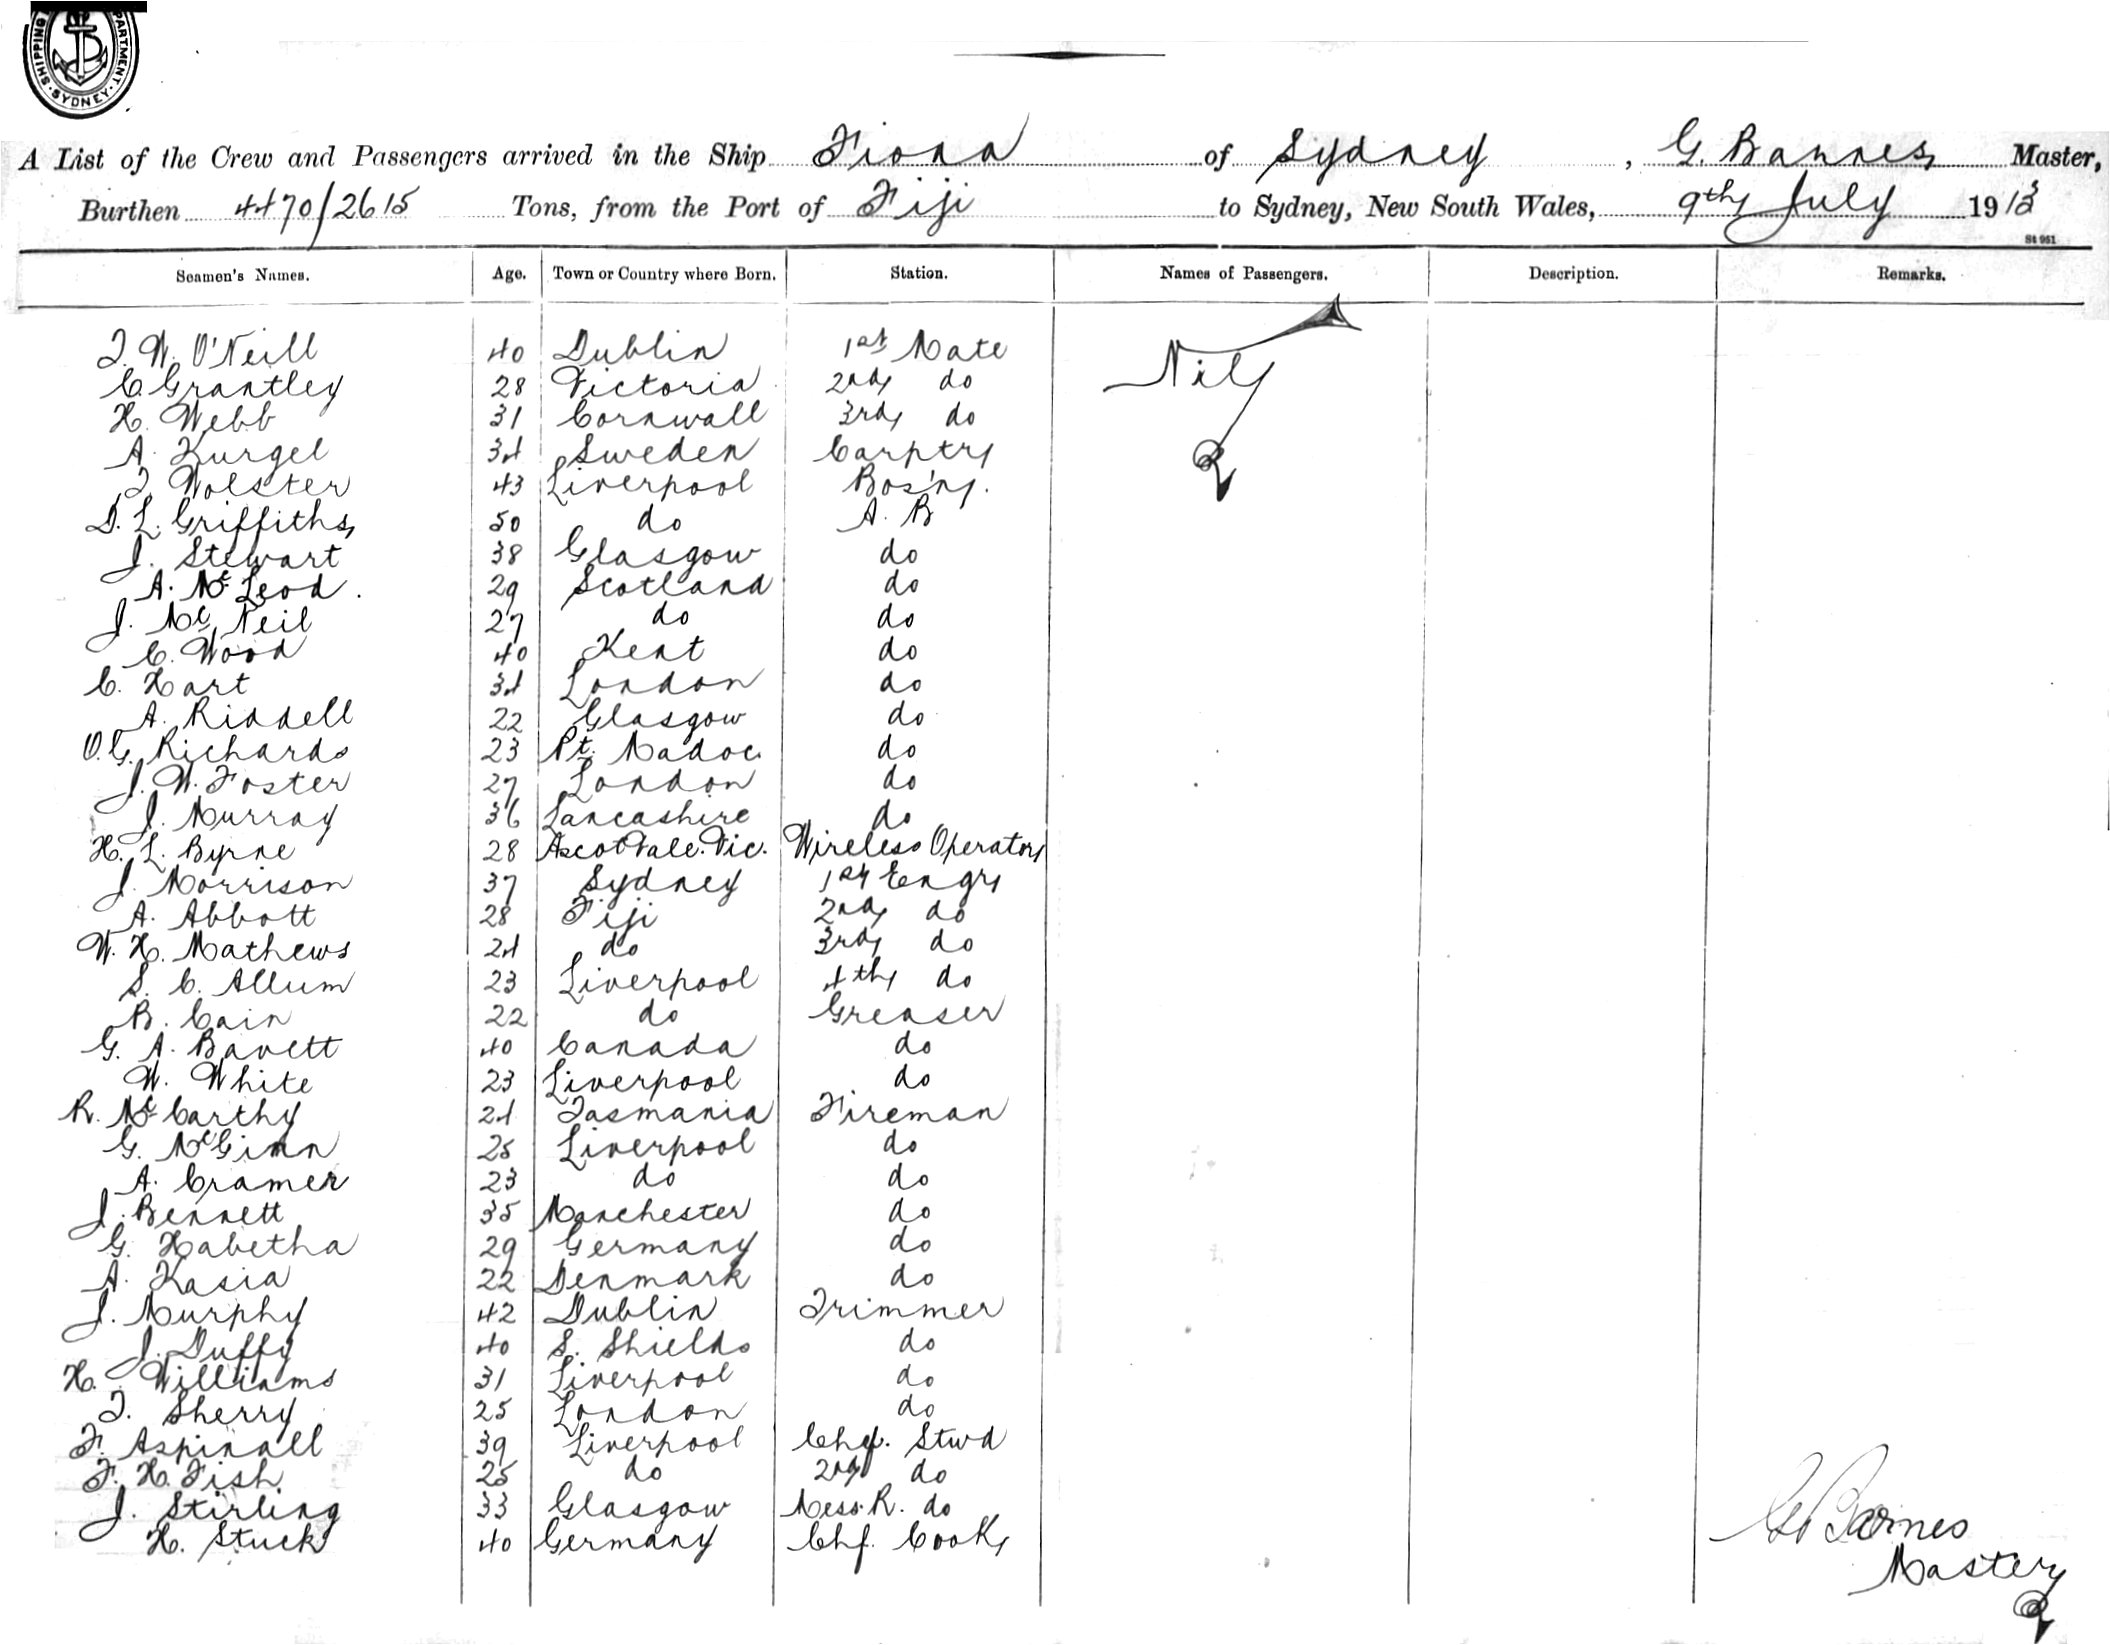 SHIPPING DEPARTMENT. SYDNEY.
A List of the Crew and Passengers arrived in the Ship Fiona of Sydney, G. Barnes Master,
Burthen 4470/2615 Tons, from the Port of Fiji to Sydney, New South Wales, 9th July 1913
St 951
Seamen's Names. Age. Town or Country where Born. Station. Names of Passengers. Description. Remarks.
T. W. O'Neill 40 Dublin 1st Mate Nil
C. Grantley 28 Victoria 2nd do
H. Webb 31 Cornwall 3rd do
A. Kurgel 34 Sweden Carptr
T. Wolster 43 Liverpool Bos'n.
D. L. Griffiths 50 do A. B
J. Stewart 38 Glasgow do
A. McLeod. 29 Scotland do
J. McNeil 27 do do
C. Wood 40 Kent do
C. Hart 34 London do
A. Riddell 22 Glasgow do
O. G. Richards 23 Pt. Madoc do
J. W. Foster 27 London do
J. Murray 36 Lancashire do
H. L. Byrne 28 Ascot Vale. Vic. Wireless Operator
J. Morrison 37 Sydney 1st Engr
A. Abbott 28 Fiji 2nd do
W. H. Mathews 24 do 3rd do
S. C. Allum 23 Liverpool 4th do
B. Cain 22 do Greaser
G. A. Bavett 40 Canada do
W. White 23 Liverpool do
R. McCarthy 24 Tasmania Fireman
G. McGinn 25 Liverpool do
A. Cramer 23 do do
J. Bennett 35 Manchester do
G. Habetha 29 Germany do
A. Kasia 22 Denmark do
J. Murphy 42 Dublin Trimmer
J. Duffy 40 S. Shields do
H. Williams 31 Liverpool do
T. Sherry 25 London do
F. Aspinall 39 Liverpool Chf. Stwd
F. H. Fish 25 do 2nd do
J. Stirling 33 Glasgow Mess. R. do
H. Stuck 40 Germany Chf. Cook
G Barnes
Master